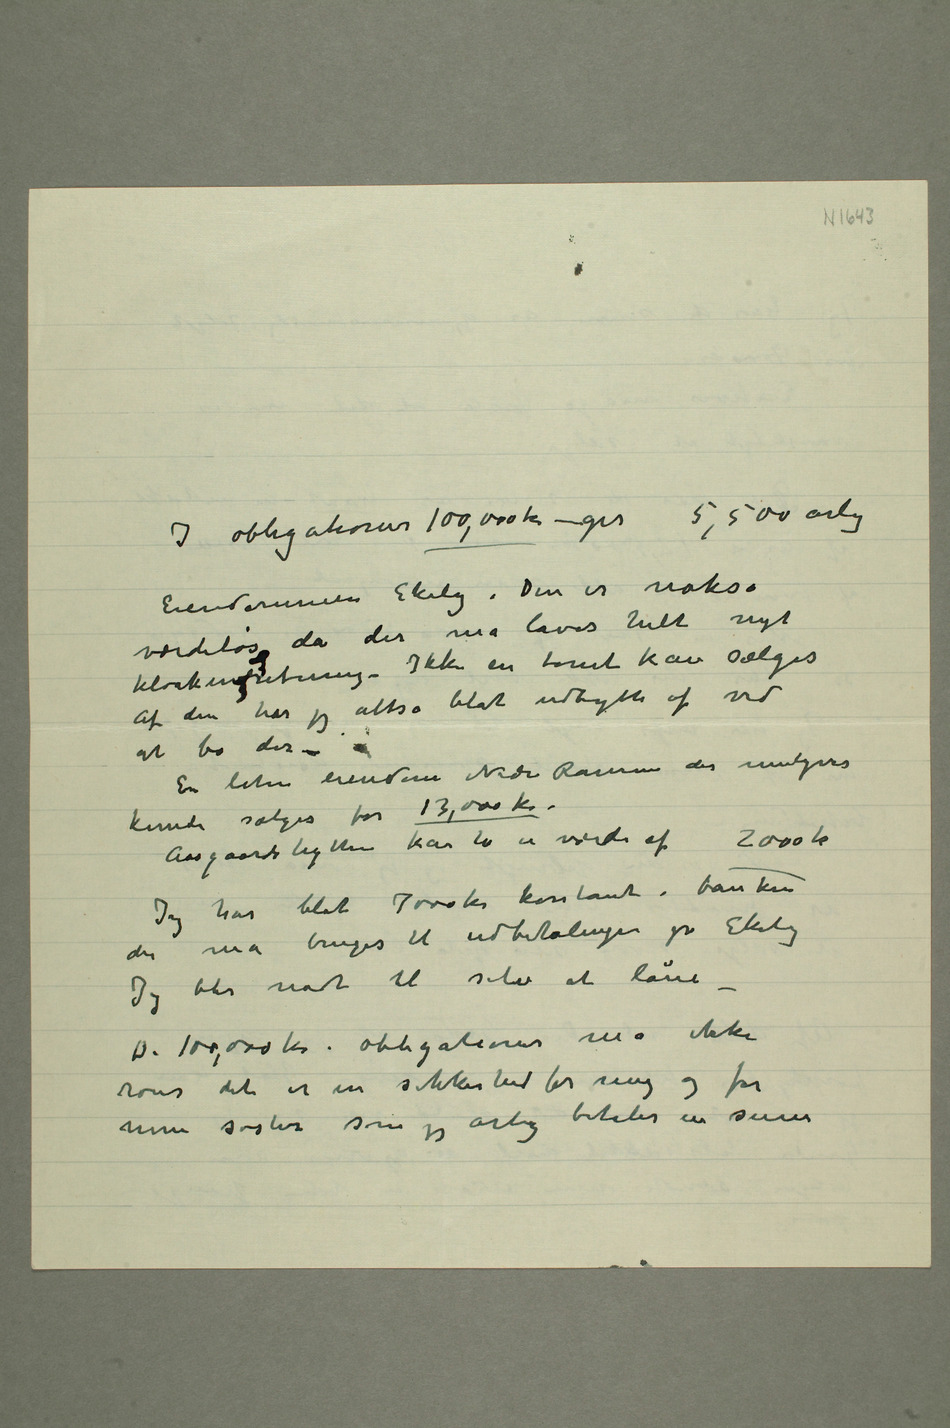 N 1643
I obligationer 100,000 kr – gir 5,500 årlig
Eiendommen Ekely. Den er nokså
værdiløs da der må laves helt nyt
kloakindretning – Ikke en tomt kan sælges
Af den har jeg altså blot udbytte af ved
at bo der –
En liten eiendom Nedre Ramme der muligvis
kunde sælges for 13,000 kr.
Aasgaardshytten kan ha en værdi af 2000 kr
Jeg har blot 7000 kr kontant i banken
der må bruges til udbetalinger på Ekely
Jeg blir nødt til selv at låne –
De 100,000 kr i obligationer må ikke
røres det er en sikkerhed for mig og for
min søster som jeg årlig betaler en sum